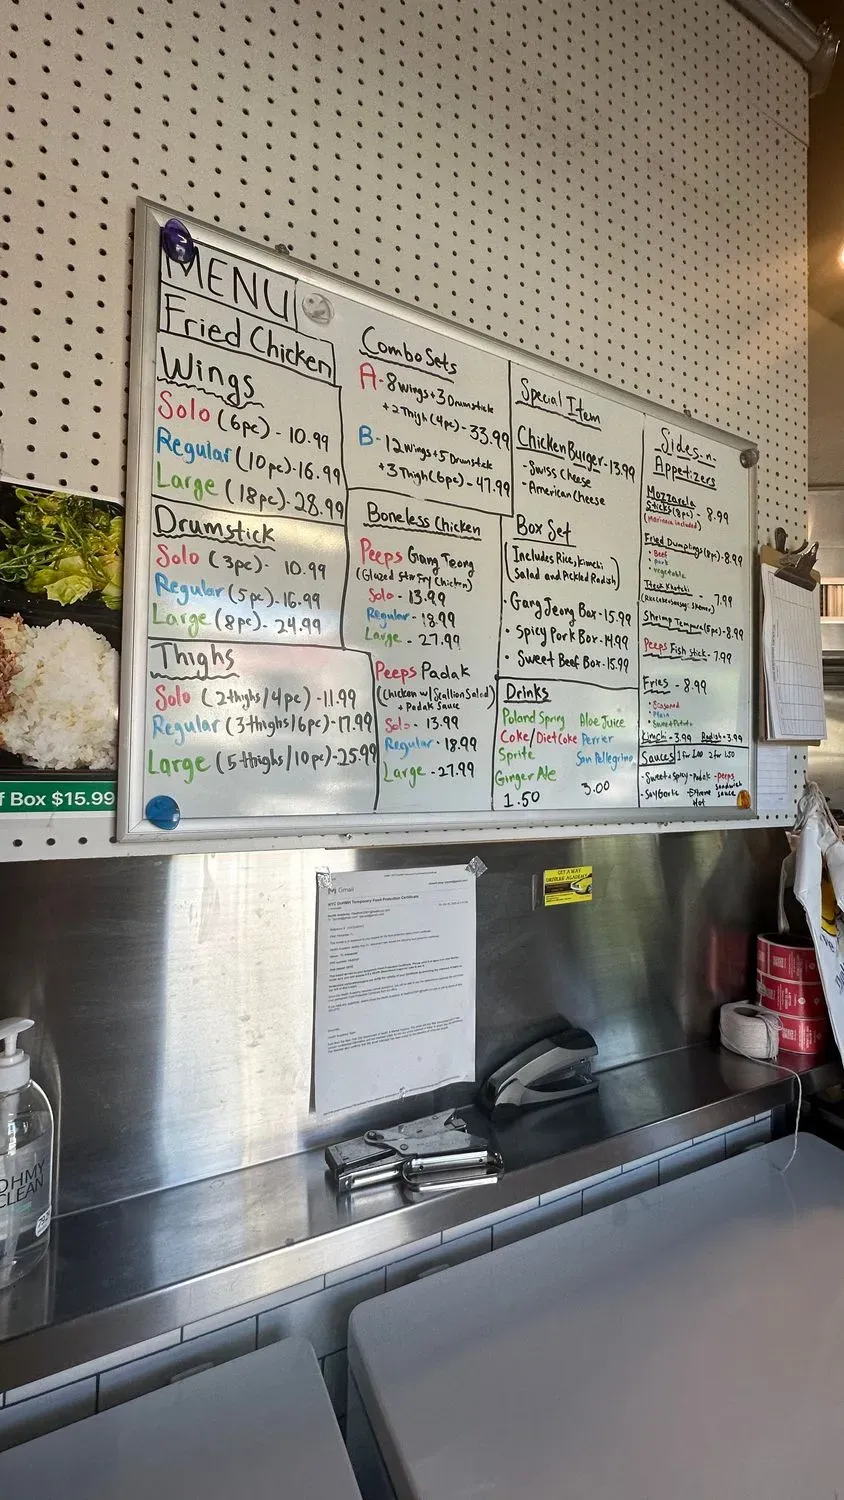 MENU
Fried Chicken
Wings
Solo (6pc) - 10.99
Regular (10pc) - 16.99
Large (18pc) - 28.99
Drumstick
Solo (3pc) - 10.99
Regular (5pc) - 16.99
Large (8pc) - 24.99
Thighs
Solo (2thighs/4pc) - 11.99
Regular (3thighs/6pc) - 17.99
Large (5thighs/10pc) - 25.99
Combo Sets
A - 8wings + 3Drumstick
+ 2Thigh (4pc) - 33.99
B - 12wings + 5Drumstick
+ 3Thigh (6pc) - 47.99
Boneless Chicken
Peeps Gang Jeong
(Glazed Stir Fry Chicken)
Solo - 13.99
Regular - 18.99
Large - 27.99
Peeps Padak
(Chicken w/ Scallion Salad)
+ Padak Sauce
Solo - 13.99
Regular - 18.99
Large - 27.99
Special Item
Chicken Burger - 13.99
- Swiss Cheese
- American Cheese
Box Set
(Includes Rice, Kimchi
Salad and Pickled Radish)
• Gang Jeong Box - 15.99
• Spicy Pork Box - 14.99
• Sweet Beef Box - 15.99
Drinks
Poland Spring
Coke/Diet Coke
Sprite
Ginger Ale
1.50
Aloe Juice
Perrier
San Pellegrino
3.00
Sides-n-
Appetizers
Mozzarela
Sticks (8pc) - 8.99
(marinara included)
Fried Dumplings (8pc) - 8.99
• Beef
• pork
• vegetable
- 7.99
Shrimp Tempura (5pc) - 8.99
Peeps Fish stick - 7.99
Fries - 8.99
• Seasoned
• Plain
• Sweet Potato
Kimchi - 3.99 Radish - 3.99
Sauces 1 for 1.00 2 for 1.50
- Sweet n Spicy - Padak - peeps
sandwich
sauce
- Soy Garlic - Extreme
Hot
f Box $15.99
M Gmail
NYC DoHMH Temporary Food Protection Certificate
GET A WAY
DRIVERS ACADEMY
OHMY
CLEAN